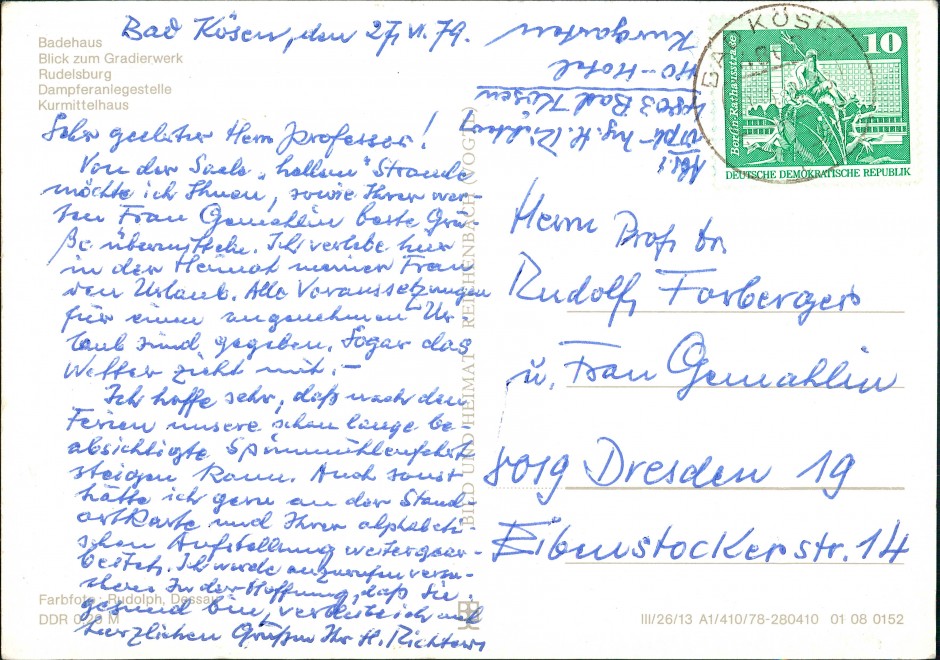 Badehaus
Blick zum Gradierwerk
Rudelsburg
Dampferanlegestelle
Kurmittelhaus
Bad Kösen, den 27. VI. 79.
Sehr geehrter Herr Professor!
Von der Saale „hellem“ Strande
möchte ich Ihnen, sowie Ihrer wer-
ten Frau Gemahlin beste Grü-
ße übermitteln. Ich verlebe hier
in der Heimat meiner Frau
den Urlaub. Alle Voraussetzungen
für einen angenehmen Ur-
laub sind gegeben. Sogar das
Wetter zieht mit. –
Ich hoffe sehr, daß nach den
Ferien unsere schon lange be-
absichtigte Spinnmühlenfahrt
steigen kann. Auch sonst
hätte ich gern an der Stand-
ortkarte und Ihrer alphabeti-
schen Aufstellung weitergear-
beitet. Ich werde anzurufen versu-
chen. In der Hoffnung, daß Sie
gesund, verbleibe ich mit
herzlichen Grüßen Ihr H. Richter
Farbfoto: Rudolph, Dessau
DDR 0,20 M
BILD UND HEIMAT REICHENBACH (VOGTL)
Abs.:
Dipl.-Ing. H. Richter
4803 Bad Kösen
HO-Hotel
Kurgarten
BAD KÖSEN
10
Berlin, Rathausstraße
DEUTSCHE DEMOKRATISCHE REPUBLIK
Herrn Prof. Dr.
Rudolf Forberger
u. Frau Gemahlin
8019 Dresden 19
Eibenstockerstr. 14
III/26/13 A1/410/78-280410 01 08 0152